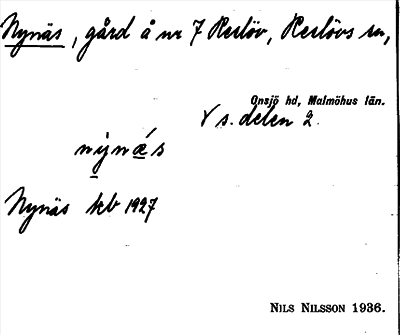 Nynäs, gård å nr 7 Reslöv, Reslövs sn,
Onsjö hd, Malmöhus län.
V s. delen 2.
nynæ´s
Nynäs kb 1927
NILS NILSSON 1936.